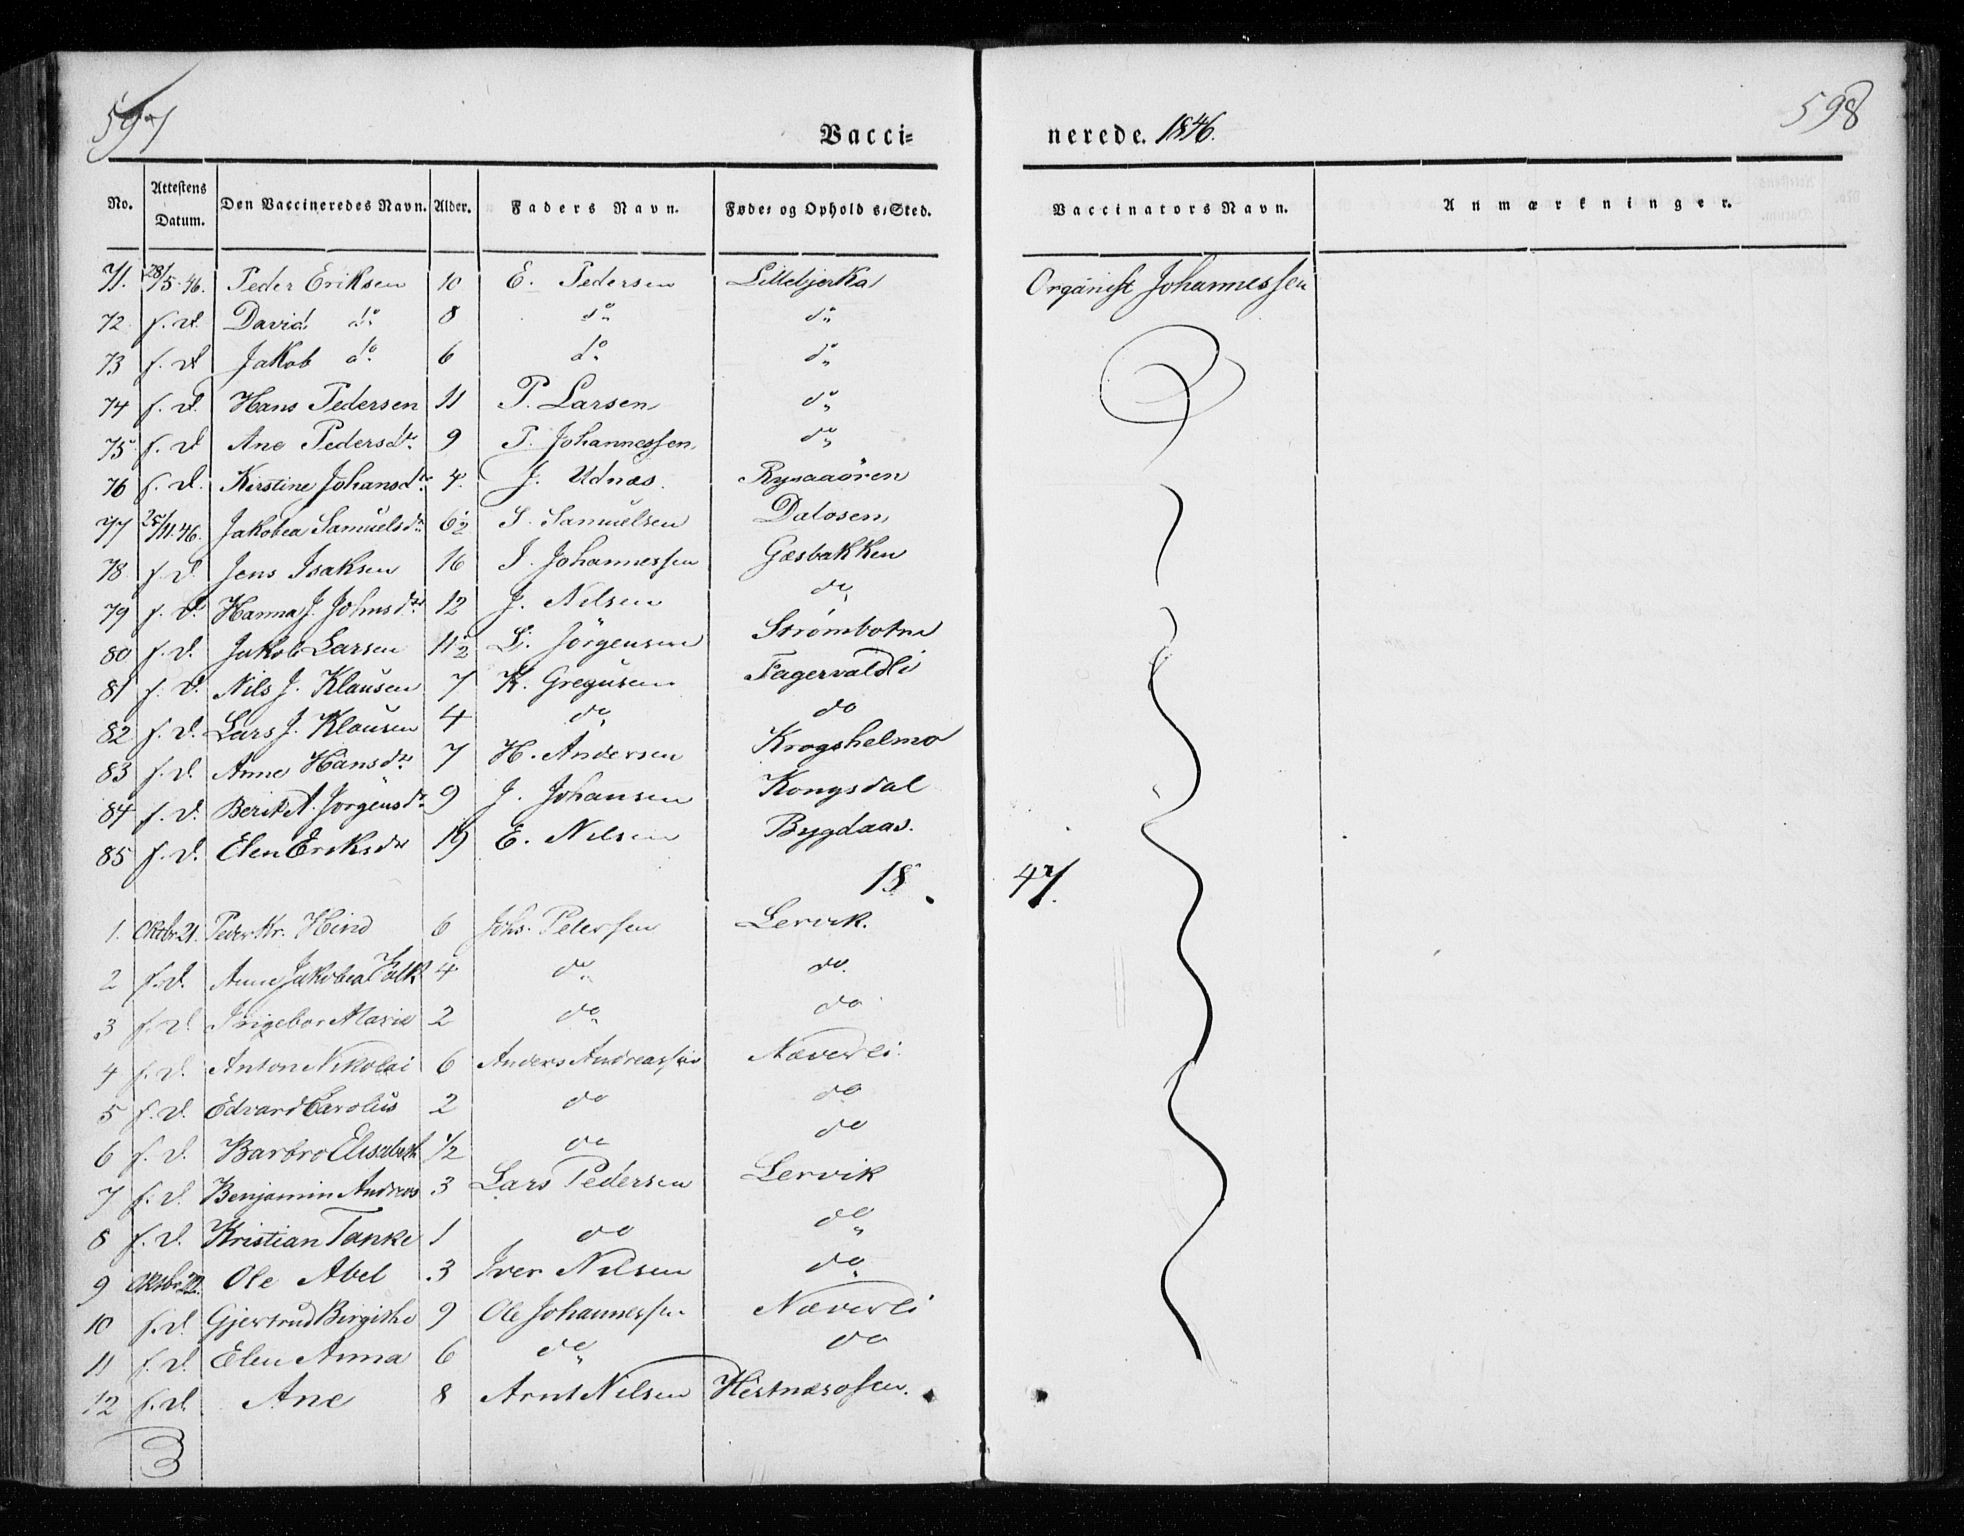 597
598
Vacci= nerede. 1846.
No. Attestens Datum. Den Vaccineredes Navn. Alder. Faders Navn. Føde= og Opholds=Sted. Vaccinators Navn. Anmærkninger.
71. 28/5.46. Peder Eriksen 10 E. Pedersen Litlebjerka Organist Johannessen
72. f. d. David do 8 do do
73 f. d. Jakob do 6 do do
74 f. d. Hans Pedersen 11 P. Larsen do
75 f. d. Ane Pedersdr. 9 P. Johannessen do
76 f. d. Kirstine Johansdr. 4. J. Udnæs. Rysaaøren
77 25/11.46. Jakobea Samuelsdr. 6½ S. Samuelsen Dalosen
78 f. d. Jens Isaksen 16 I. Johannessen Gæsbakken
79 f. d. Hanna J. Johnsdr. 12 J. Nilsen do
80 f. d. Jakob Larsen 11½ L. Jørgensen Strømbotne
81 f. d. Nils J. Klausen 7 K. Gregusen Fagervaldli
82 f. d. Lars J. Klausen 4 do do
83 f. d. Anne Hansdr. 7 H. Andersen Krogshelmo
84 f. d. Berit A. Jørgensdr. 9 J. Johansen Kongsdal
85 f. d. Elen Eriksdr 19 E. Nilsen Bygdaas.
18 47.
1. Oktbr 21. Peder Kr. Hind 6 Johs. Petersen Lervik.
2 f. d. Anne Jakobea Falk 4 do do.
3 f. d. Ingebor Marie 2 do do
4 f. d. Anton Nikolai 6 Anders Andreassen Næverli.
5 f. d. Edvard Carolus 2 do do
6 f. d. Barbro Elisabeth ½ do do
7 f. d. Benjamin Andreas 3 Lars Pedersen Lervik
8 f. d. Kristian Tanke 1 do do
9 Oktbr 22. Ole Abel 3 Iver Nilsen do
10 f. d. Gjertrud Birgithe 9 Ole Johannessen Næverli
11 f. d. Elen Anna 6 do do
12 f. d. Ane 8 Arnt Nilsen Hestnæsosen.